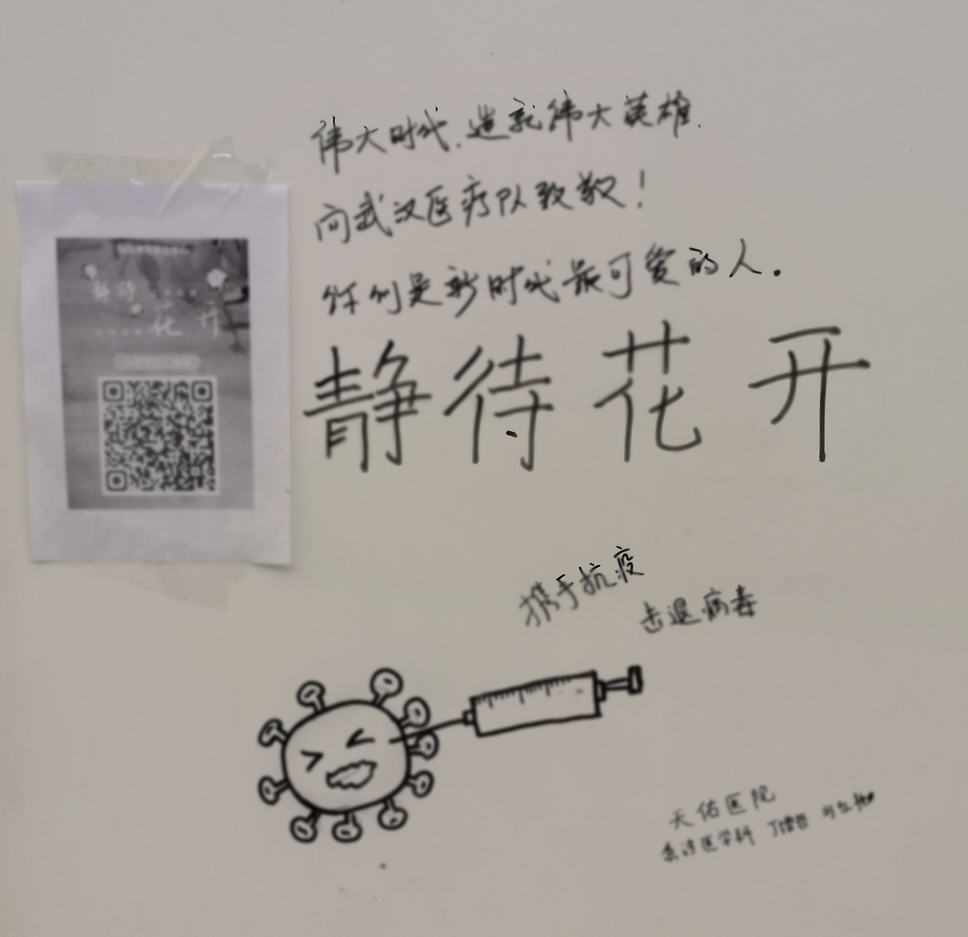 静待
花开
伟大时代,造就伟大英雄.
向武汉医疗队致敬!
你们是新时代最可爱的人.
静待花开
携手抗疫
击退病毒
天佑医院
医学科